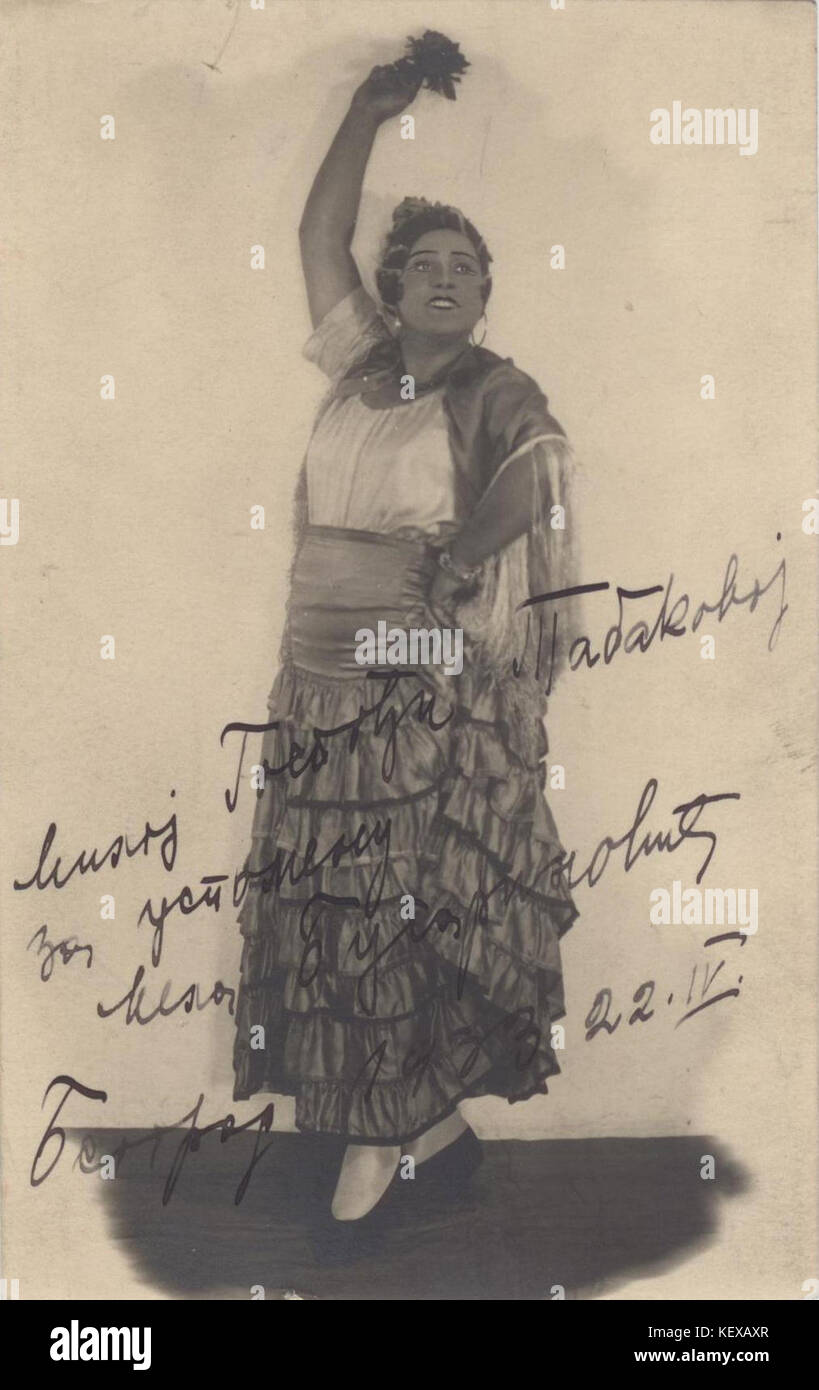 Милој Госпођи Табаковој
за успомену
Мела Бугариновић
Београд 1933 22. IV.
alamy
alamy
alamy
alamy
Image ID: KEXAXR
www.alamy.com